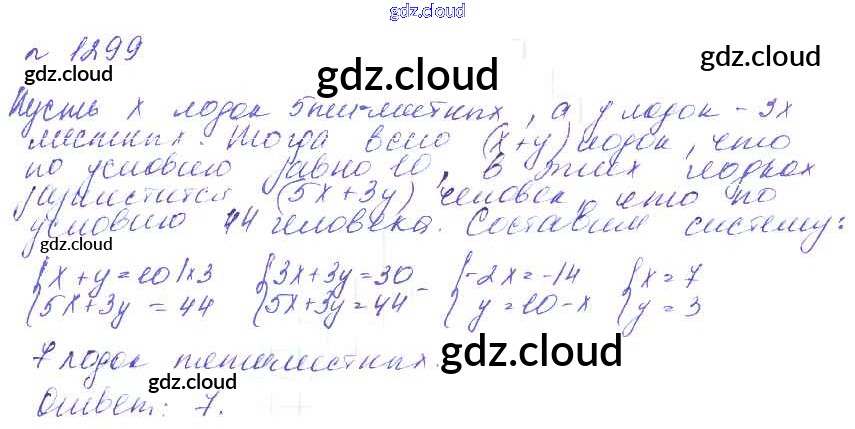 gdz.cloud
№ 1299
gdz.cloud
gdz.cloud
gdz.cloud
Пусть x лодок 5пятиместных, а y лодок - 3х
местных. Тогда всего (x+y) лодок, что
по условию равно 10, в этих лодках
разместится (5x+3y) человек, что по
условию 44 человека. Составим систему:
gdz.cloud
gdz.cloud
{x+y=10|x3 {3x+3y=30 {-2x=-14 {x=7
{5x+3y=44 {5x+3y=44 - {y=10-x {y=3
7 лодок пятиместных.
gdz.cloud
gdz.cloud
Ответ: 7.